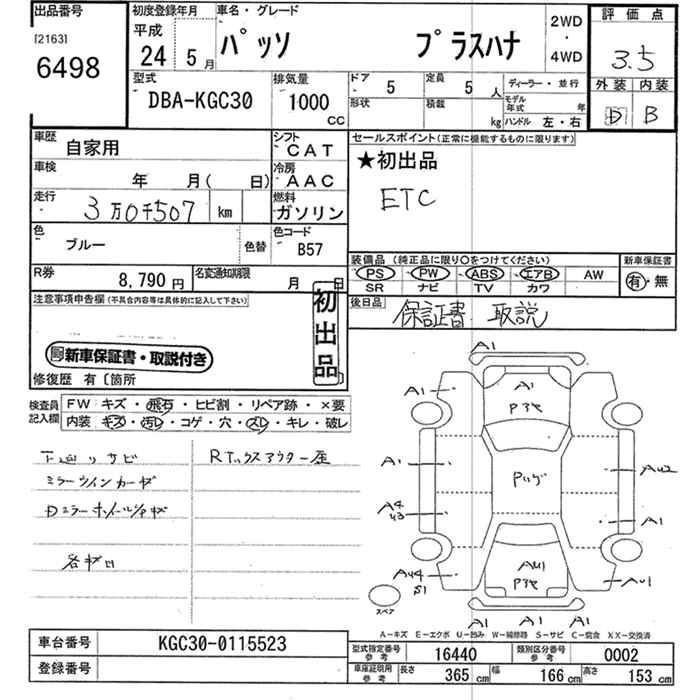 出品番号
[2163]
6498
初度登録年月
平成
24 5月
車名・グレード
パッソ プラスハナ
2WD
・
4WD
評価点
3.5
外装 内装
D B
型式
DBA-KGC30
排気量
1000
CC
ドア 5
定員 5 人
ディーラー・並行
形状
積載
kg
モデル年式 年
ハンドル 左・右
車歴 自家用
シフト CAT
車検 年 月( 日)
冷房 AAC
走行 3万0千507 km
燃料 ガソリン
色 ブルー
色替
色コード B57
R券 8,790円
名変通知期限 月 日
セールスポイント(正常に機能するものに限ります)
★初出品
ETC
装備品(純正品に限り○をつけてください)
新車保証書
PS PW ABS エアB AW
SR ナビ TV カワ
有・無
後日品 保証書 取説
注意事項申告欄(不具合内容等は具体的に記入して下さい)
初出品
新車保証書・取説付き
修復歴 有〔箇所
検査員記入欄
FW キズ・飛石・ヒビ割・リペア跡・×要
内装 キズ・汚レ・コゲ・穴・スレ・キレ・破レ
下廻りサビ
各キロ
A1
A1
A1
A1
A4
A1
AU2
A1
AU1
AU1
AU4
S1
A1
A1
A1
スペア
A―キズ E―エクボ U―凹み W―補修跡 S―サビ C―腐食 XX―交換済
車台番号 KGC30-0115523
登録番号
型式指定番号参考 16440
類別区分番号参考 0002
車庫証明用参考
長さ 365 cm
幅 166 cm
高さ 153 cm